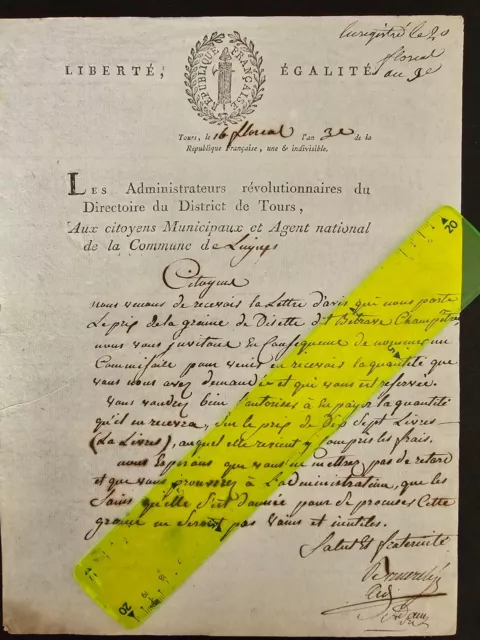 Enregistré le 20
floreal
an 3e
LIBERTÉ, ÉGALITÉ
RÉPUBLIQUE FRANÇAISE
Tours, le 16 floreal l'an 3e de la
République Française, une & indivisible.
LES Administrateurs révolutionnaires du
Directoire du District de Tours,
Aux citoyens Municipaux et Agent national
de la Commune de Luynes
Citoyens
nous venons de recevoir la Lettre d'avis qui nous porte
Le prix de la graine de Disette dit Betrave Champêtre
nous vous invitons en Conséquence de nommer un
Commissaire pour venir en recevoir la quantité que
vous nous avez demandé et qui vous est reservée.
Vous voudrez bien l'autoriser à en payer la quantité
qu'il en recevra, sur le prix de Dix Sept Livres
(La Livre), auquel elle revient y compris les frais.
nous Esperons que vous ne mettrez pas de retard
et que vous prouverez à L'administration, que les
soins qu'elle s'est donnée pour de procurer Cette
graine ne seront pas vains et inutiles.
Salut et fraternité
20
5
20